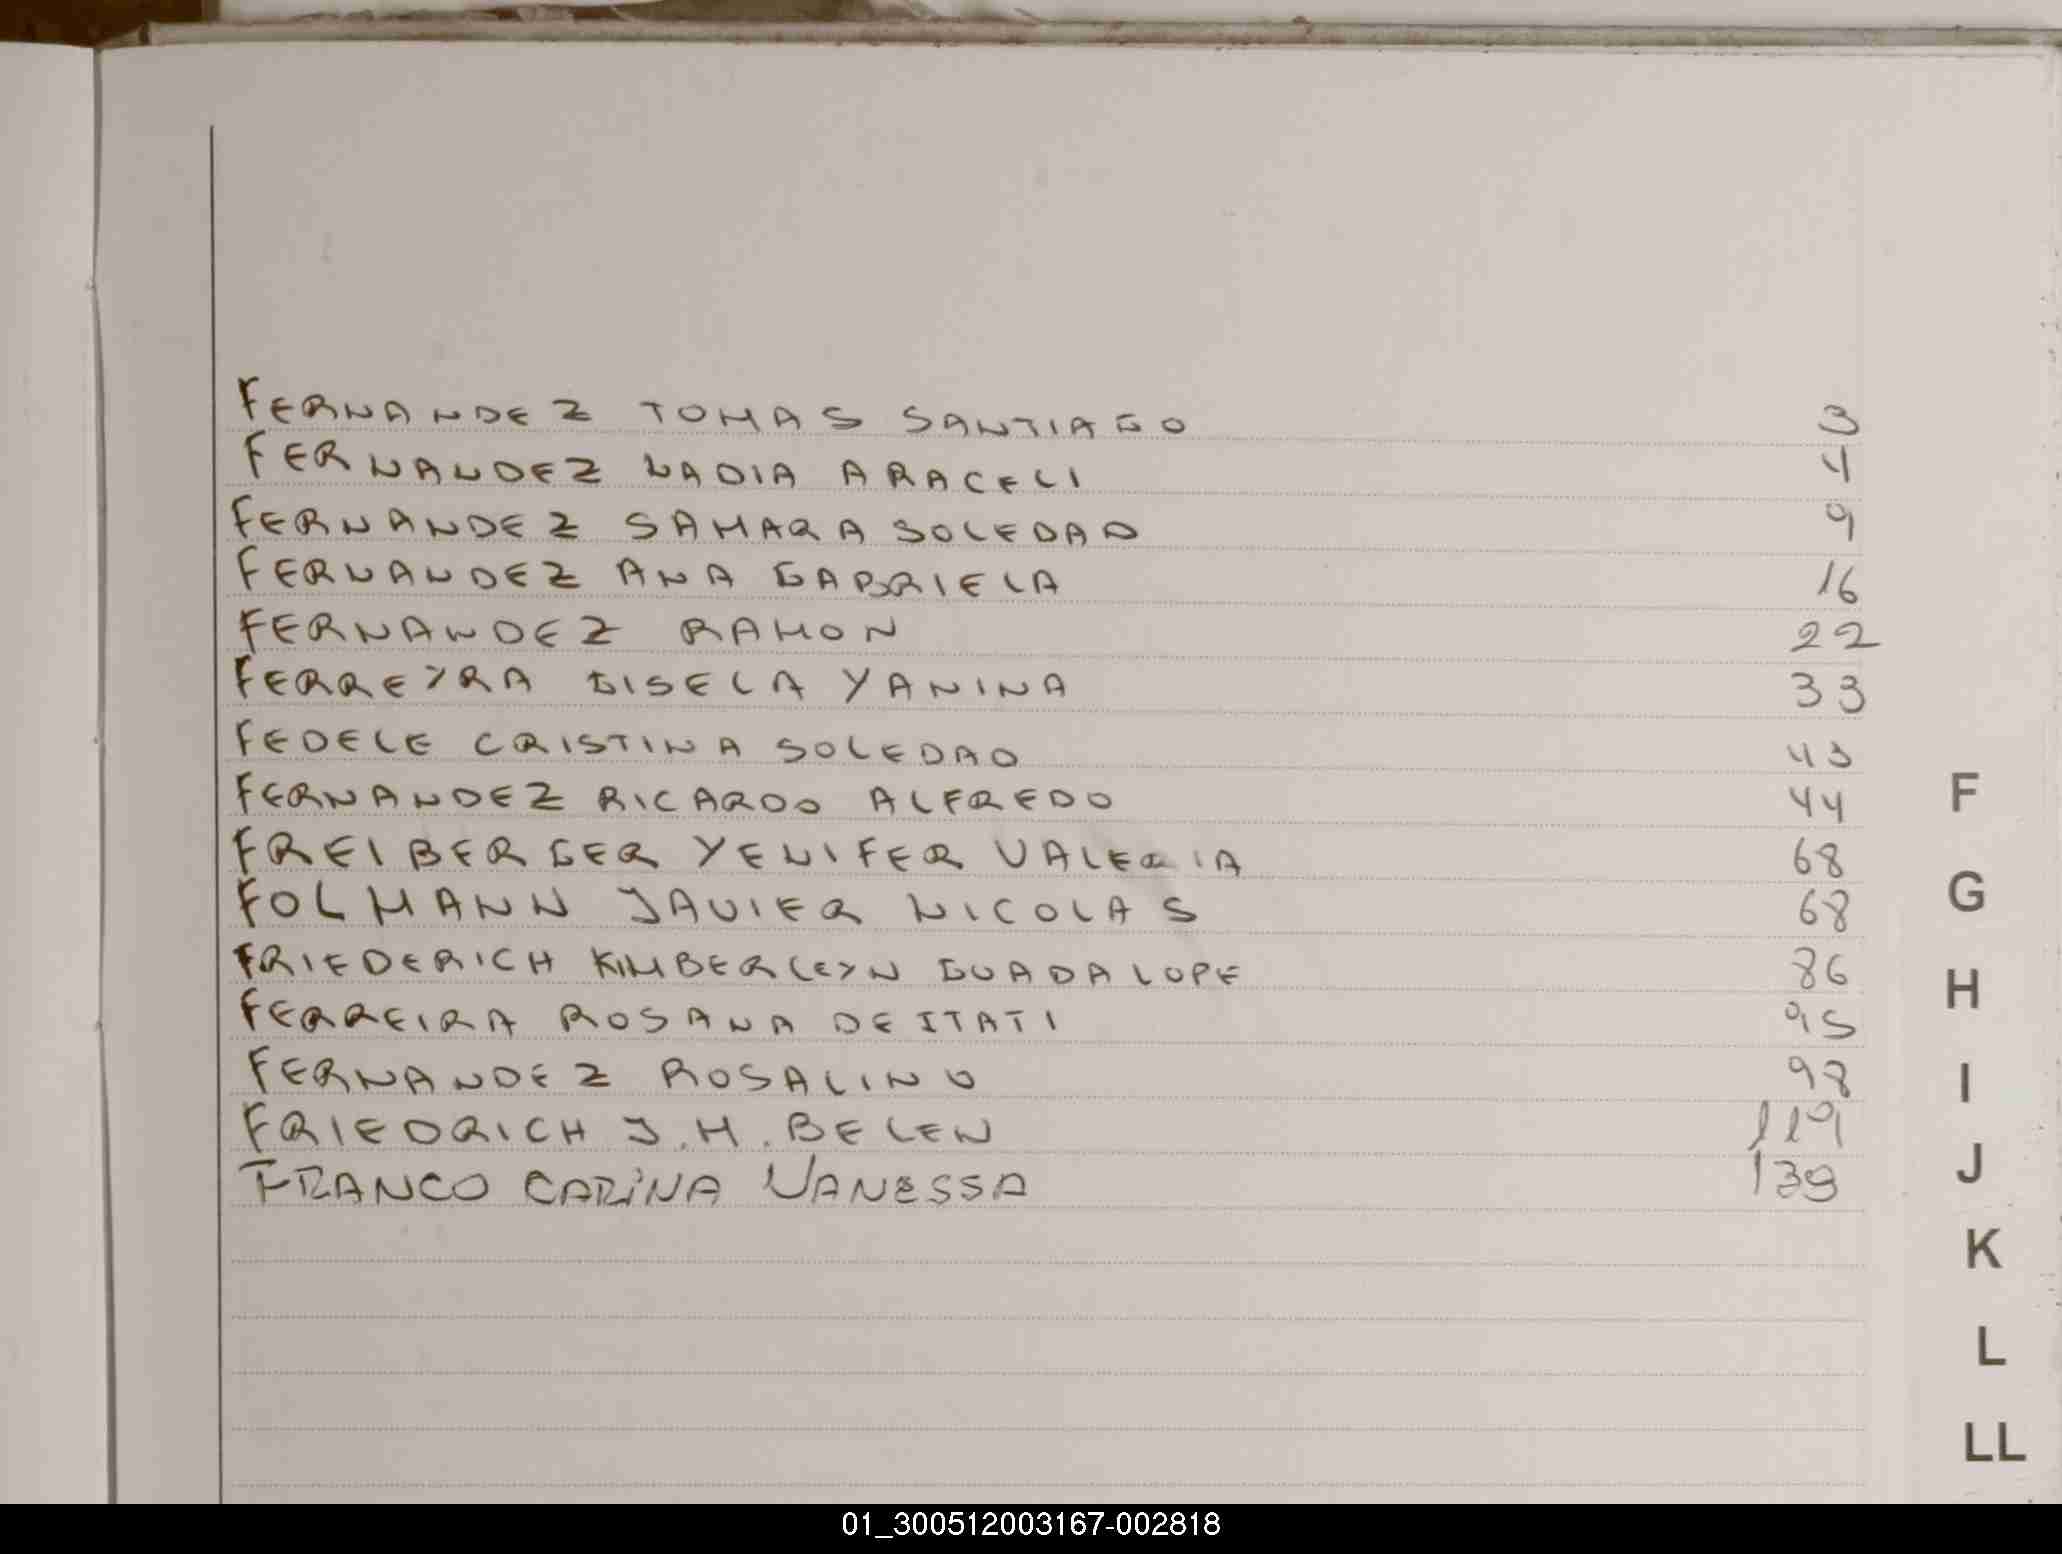 FERNANDEZ TOMAS SANTIAGO 3
FERNANDEZ NADIA ARACELI 4
FERNANDEZ SAMARA SOLEDAD 9
FERNANDEZ ANA GABRIELA 16
FERNANDEZ RAMON 22
FERREYRA GISELA YANINA 33
FEDELE CRISTINA SOLEDAD 43
FERNANDEZ RICARDO ALFREDO 44
FREIBERGER YENIFER VALERIA 68
FOLMANN JAVIER NICOLAS 68
FRIEDERICH KIMBERLEYN GUADALUPE 86
FERREIRA ROSANA DE ITATI 95
FERNANDEZ ROSALINO 98
FRIEDRICH J.M. BELEN 119
FRANCO CARINA VANESSA 139
F
G
H
I
J
K
L
LL
01_300512003167-002818